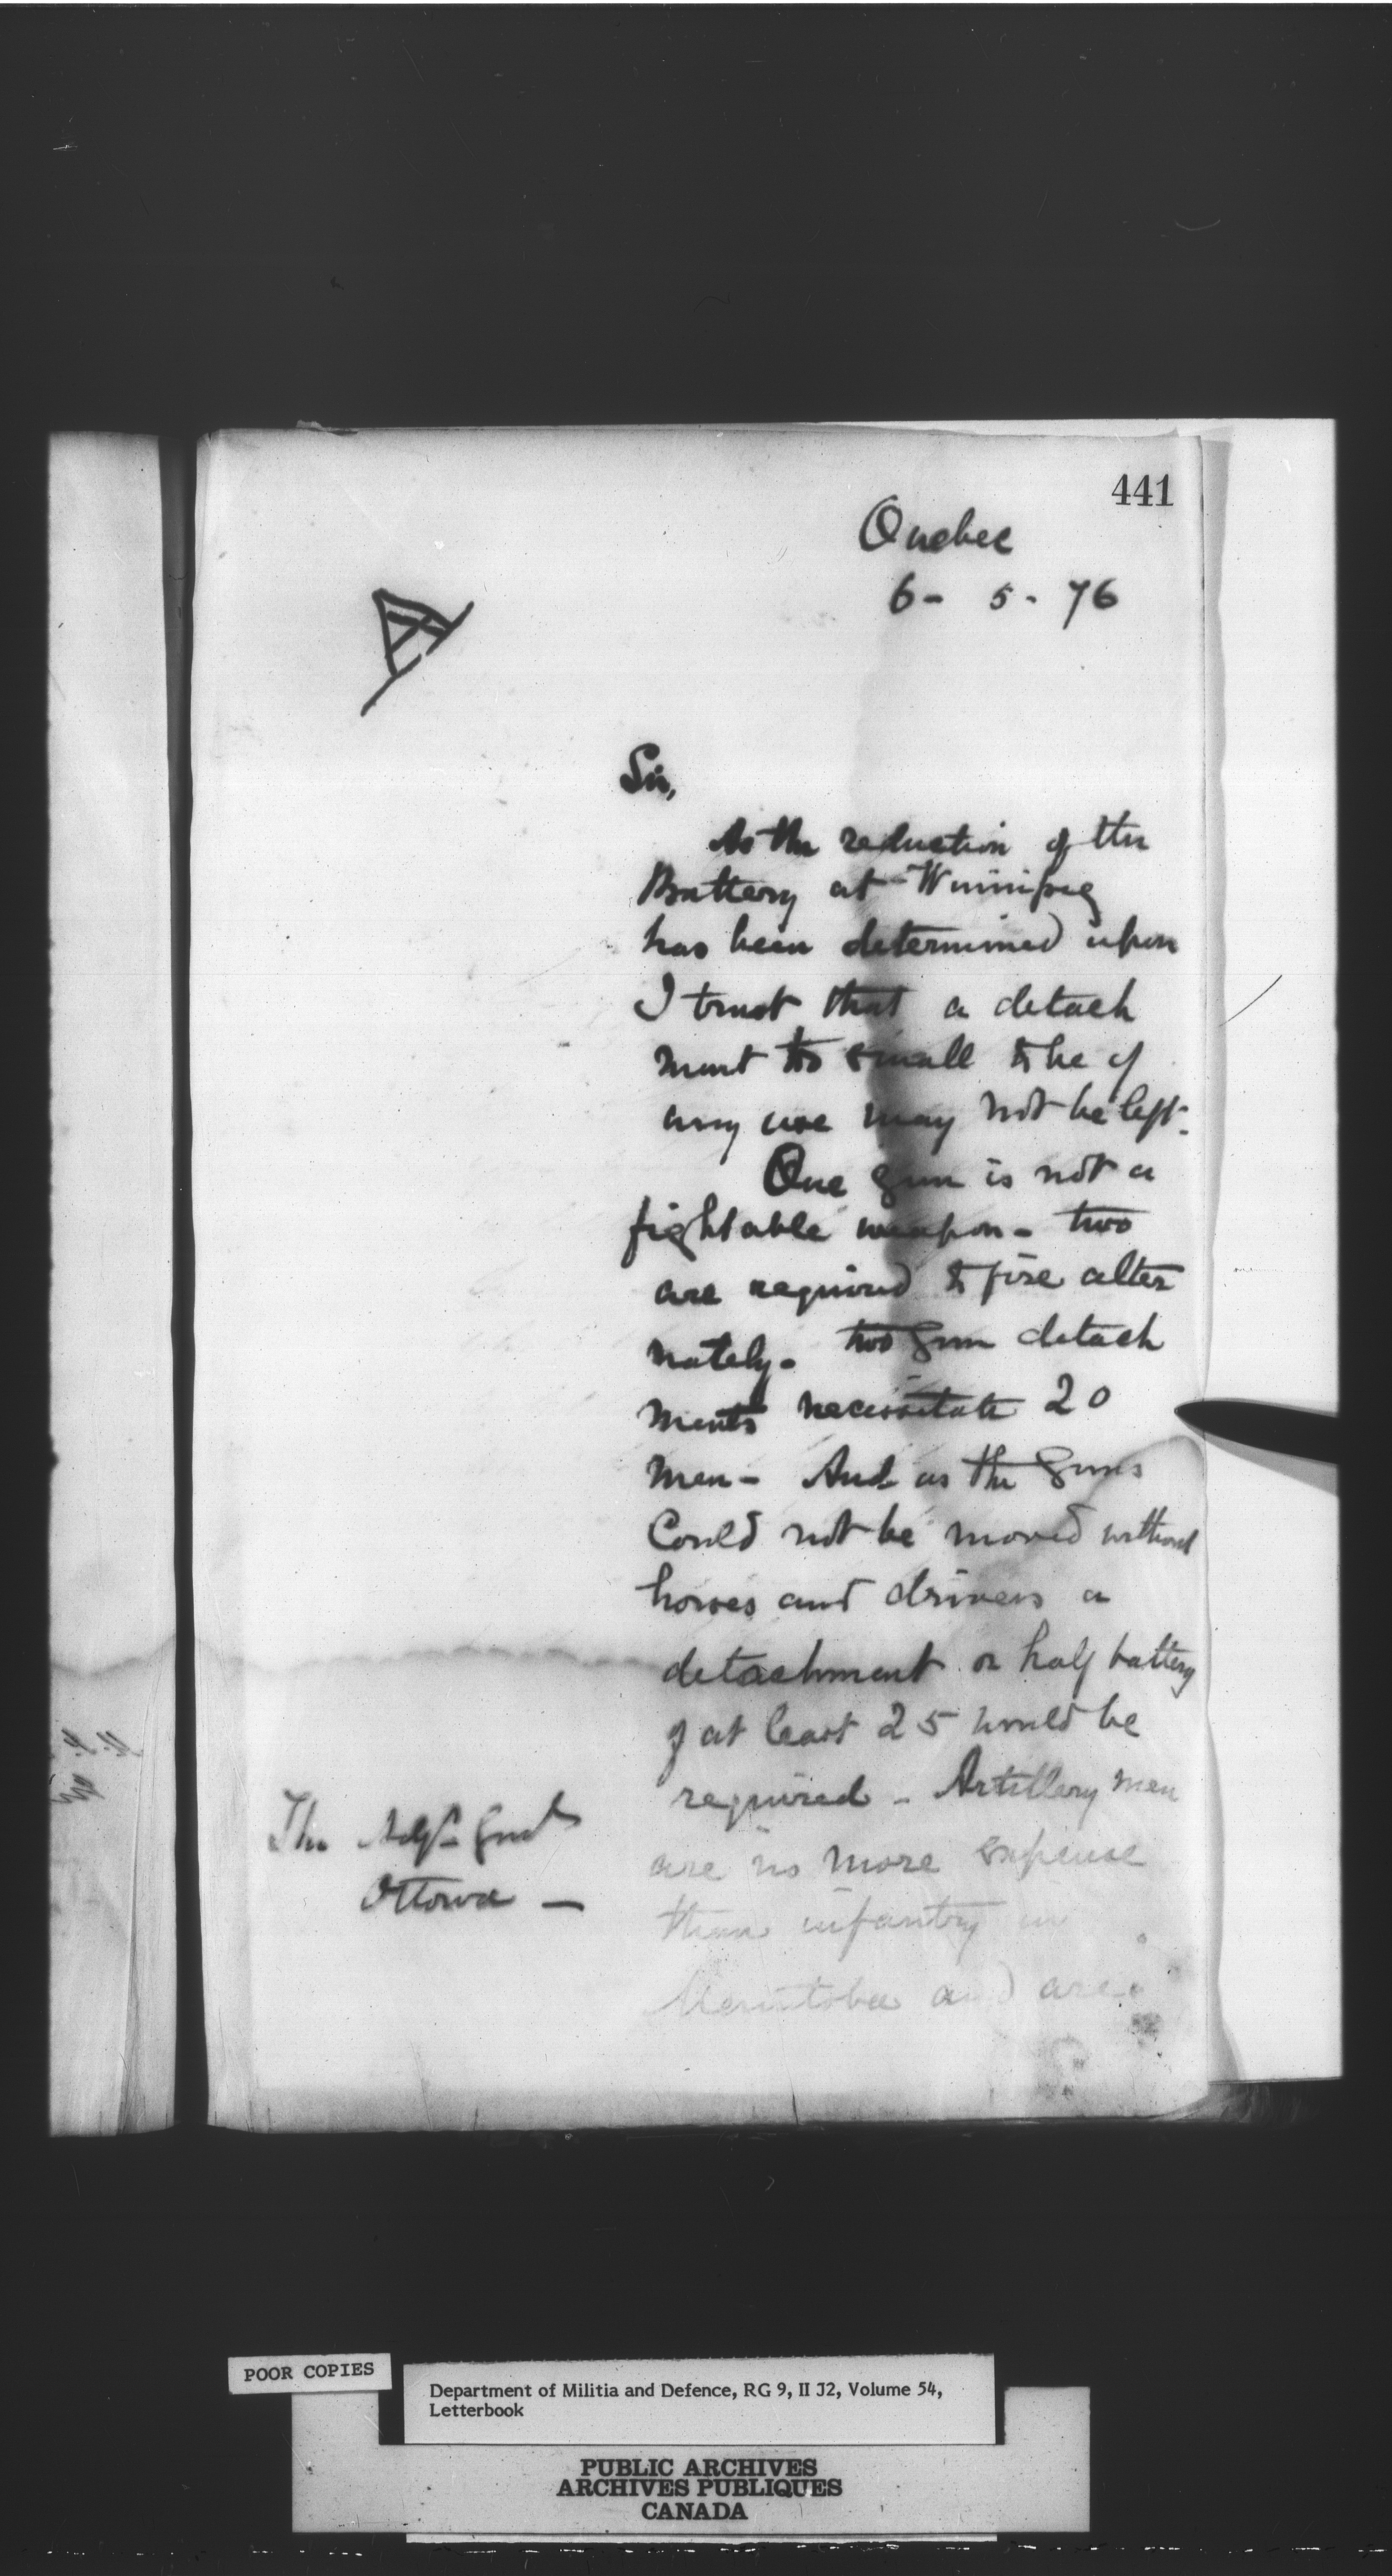 441
Quebec
6- 5- 76
Sir,
As the reduction of the
Battery at Winnipeg
has been determined upon
I trust that a detach
ment too small to be of
any use may not be left.
One gun is not a
fightable weapon - two
are required to fire alter
nately. two gun detach
ments necessitate 20
men - And as the guns
Could not be moved without
horses and drivers a
detachment or half battery
of at least 25 would be
required - Artillery men
are no more expense
than infantry in
Manitoba and are
The Adjt Genl
Ottawa -
POOR COPIES
Department of Militia and Defence, RG 9, II J2, Volume 54,
Letterbook
PUBLIC ARCHIVES
ARCHIVES PUBLIQUES
CANADA